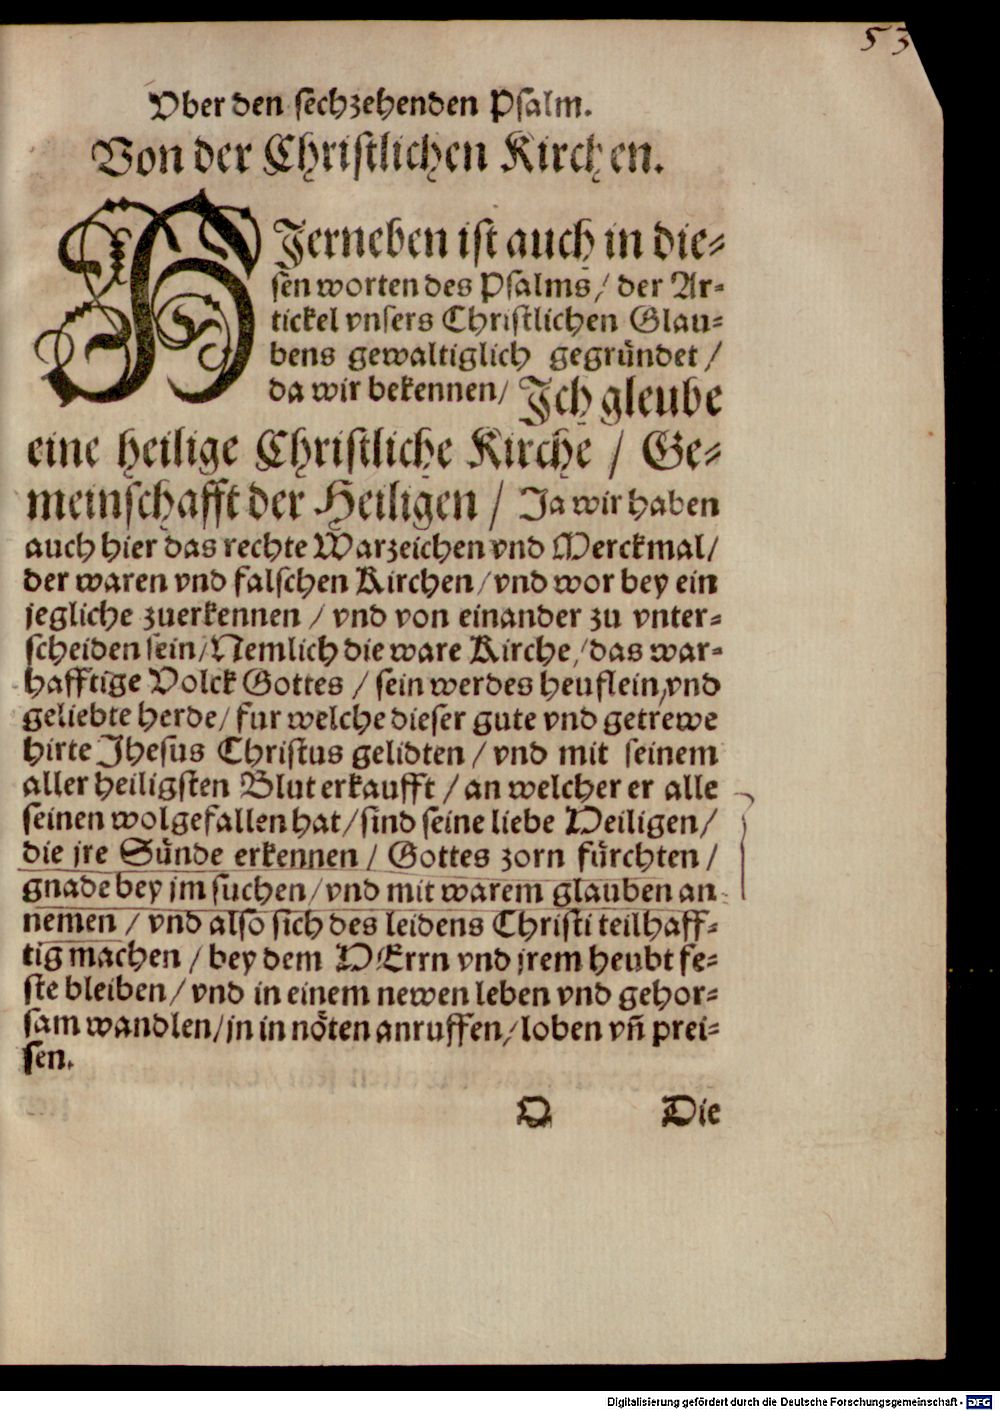 53
Vber den sechzehenden Psalm.
Von der Christlichen Kirchen.
HJerneben ist auch in die-
sen worten des Psalms/ der Ar-
tickel vnsers Christlichen Glau-
bens gewaltiglich gegründet /
da wir bekennen/ Jch gleube
eine heilige Christliche Kirche / Ge-
meinschafft der Heiligen / Ja wir haben
auch hier das rechte Warzeichen vnd Merckmal/
der waren vnd falschen Kirchen/ vnd wor bey ein
jegliche zuerkennen / vnd von einander zu vnter-
scheiden sein/ Nemlich die ware Kirche/ das war-
hafftige Volck Gottes / sein werdes heuflein/ vnd
geliebte herde/ fur welche dieser gute vnd getrewe
hirte Jhesus Christus gelidten / vnd mit seinem
aller heiligsten Blut erkaufft / an welcher er alle
seinen wolgefallen hat/ sind seine liebe Heiligen/
die jre Sünde erkennen / Gottes zorn fürchten /
gnade bey jm suchen/ vnd mit warem glauben an
nemen / vnd also sich des leidens Christi teilhaff-
tig machen / bey dem HErrn vnd jrem heubt fe-
ste bleiben/ vnd in einem newen leben vnd gehor-
sam wandlen/ jn in nöten anruffen/ loben vñ prei-
sen.
O Die
Digitalisierung gefördert durch die Deutsche Forschungsgemeinschaft - DFG